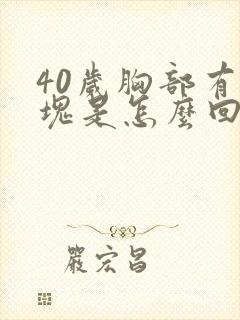 40歲胸部有
塊是怎麼回
嚴宏昌